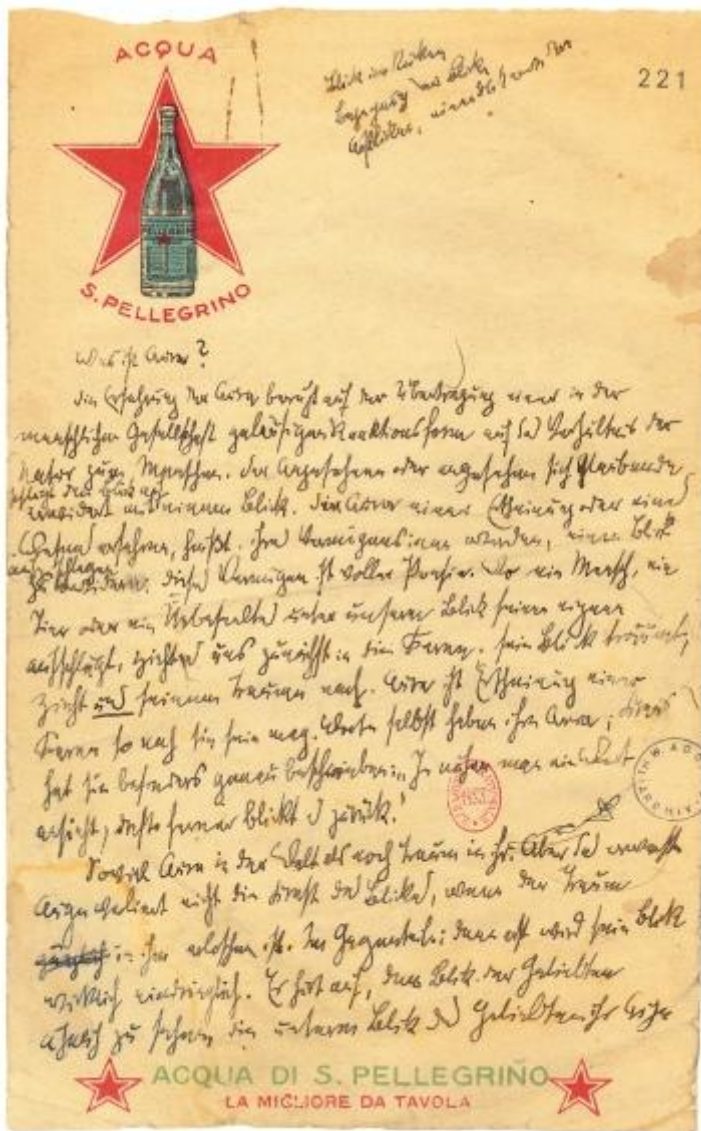 ACQUA
S. PELLEGRINO
221
Blick im Rücken
Begegnung der Blicke
Was ist Aura?
Die Erfahrung der Aura beruht auf der Übertragung einer in der
menschlichen Gesellschaft geläufigen Reaktionsform auf das Verhältnis der
Natur zum Menschen. Der Angesehene oder angesehen sich Glaubende
schlägt den Blick auf
erwidert mit einem Blick. Die Aura einer Erscheinung oder eines
Wesens erfahren, heißt, ihres Vermögens inne werden, einen Blick
aufzuschlagen
zu erwidern. Dieses Vermögen ist voller Poesie. Wo ein Mensch, ein
Tier oder ein Unbeseeltes unter unserm Blick seinen eignen
aufschlägt, zieht es uns zunächst in die Ferne; sein Blick träumt,
zieht uns seinem Traume nach. Aura ist Erscheinung einer
Ferne so nah sie sein mag. Worte selbst haben ihre Aura; Kraus
hat sie besonders genau beschrieben: „Je näher man ein Wort
ansieht, desto ferner blickt es zurück."
Soviel Aura in der Welt als noch Traum in ihr. Aber das erwachte
Auge verlernt nicht die Kunst des Blicks, wenn der Traum
in ihm erloschen ist. Im Gegenteil: dann erst wird sein Blick
wirklich eindringlich. Er hört auf, dem Blick der Geliebten
ähnlich zu sehen, die unterm Blick des Geliebten ihr Auge
ACQUA DI S. PELLEGRINO
LA MIGLIORE DA TAVOLA